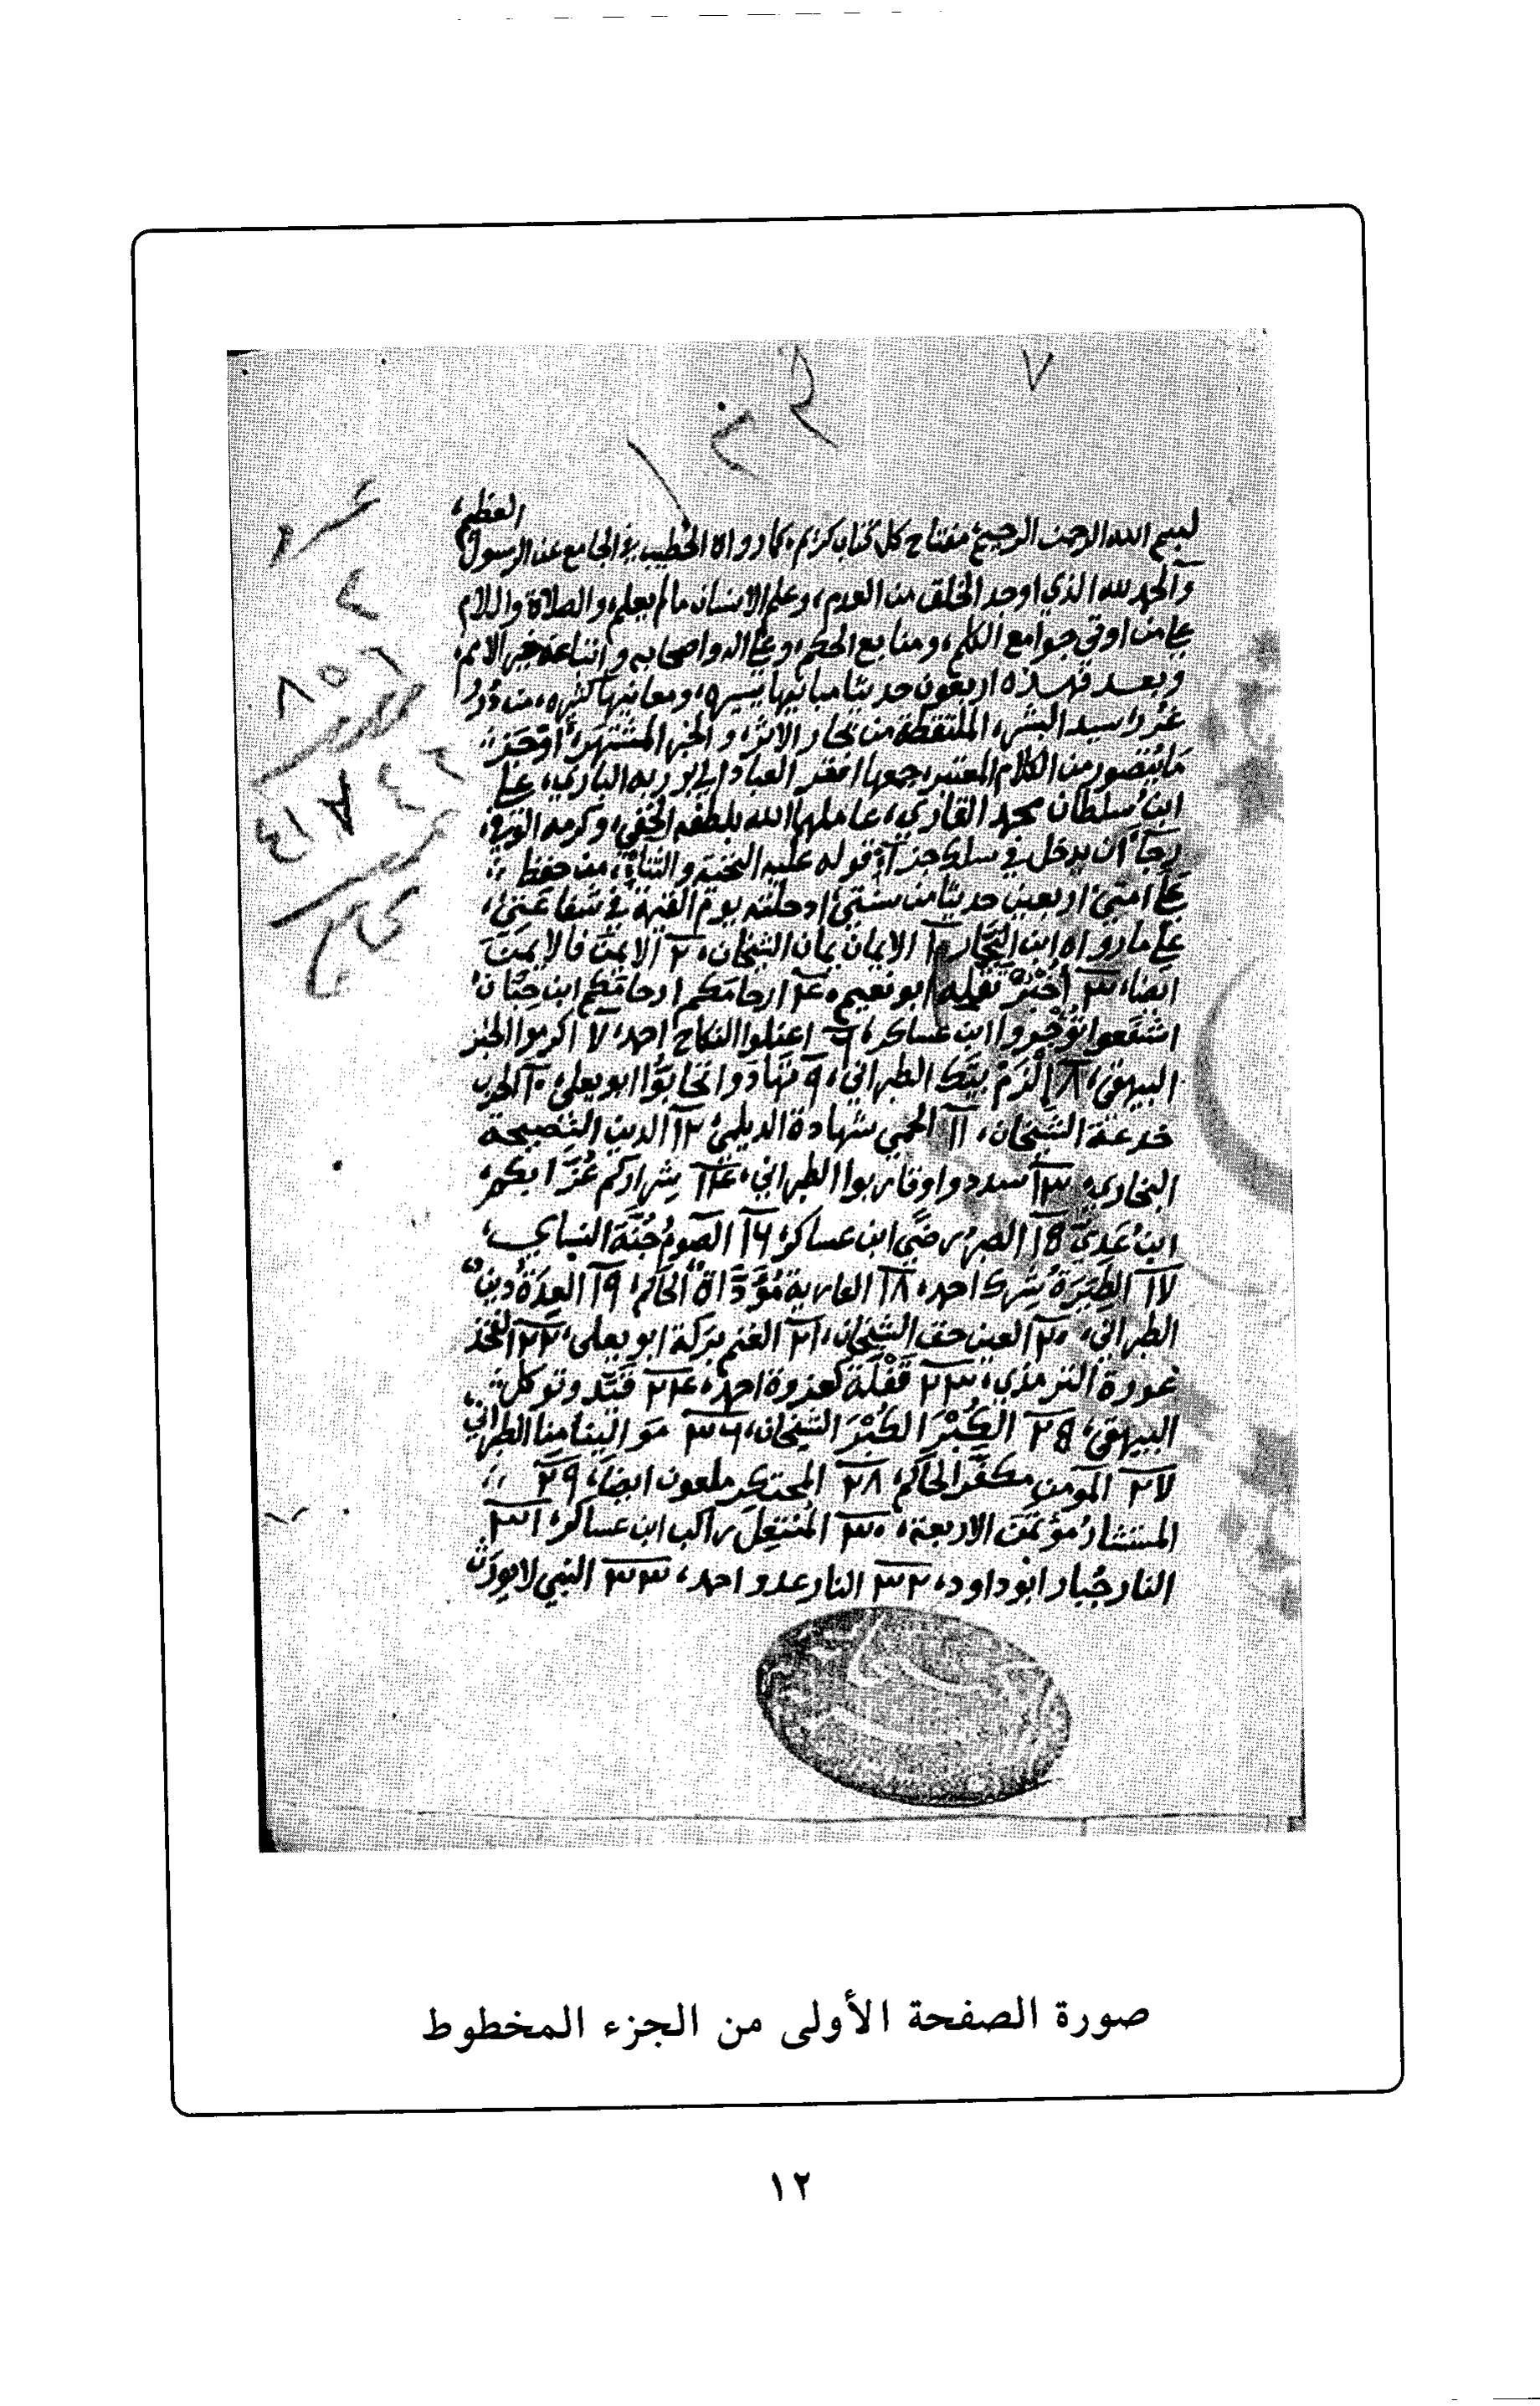 ٧
العظيم
بسم الله الرحمن الرحيم مفتاح كل كتاب كريم، كما رواه الخطيب في الجامع عن الرسول
والحمد لله الذي اوجد الخلق من العدم، وعلم الانسان ما لم يعلم، والصلاة والسلام
على من اوتي جوامع الكلم، ومنابع الحكم، وعلى اله واصحابه واتباعه خير الامم،
وبعد فهذه اربعون حديثا مبانيها يسيره، ومعانيها كثيره، من درر
غرر سيد البشر، الملتقطة من بحار الاثر، والخبر المشتهر، اوجز
ما يتصور من الكلام المعتبر، جمعها افقر العباد الى بر ربه الباري، على
ابن سلطان محمد القاري، عاملهما الله بلطفه الخفي، وكرمه الوفي،
رجآ ان يدخل في سلك جزآء قوله عليه التحية والثناء، من حفظ
على امتي اربعين حديثا من سنتي ادخلته يوم القيمة في شفاعتي،
على ما رواه ابن النجار ١ الايمان يمان الشيخان، ٢ الايمن فالايمن
ايضا، ٣ اخبر تقله ابو نعيم، ٤ ارحامكم ارحامكم ابن حبان ٥
اشفعوا توجروا ابن عساكر، ٦ اعلنوا النكاح احمد، ٧ اكرموا الخبز
البيهقي، ٨ الزم بيتك الطبراني، ٩ تهادوا تحابوا ابو يعلى، ١٠ الحرب
خدعة الشيخان، ١١ الحمى شهادة الديلمي ١٢ الدين النصيحة
البخاري، ١٣ سددوا وقاربوا الطبراني، ١٤ شراركم عزابكم
ابن عدي ١٥ الصبر رضى ابن عساكر، ١٦ الصوم جنة النسائي،
١٧ الطيرة شرك احمد، ١٨ العارية مؤداة الحاكم، ١٩ العدة دين
الطبراني، ٢٠ العين حق الشيخان، ٢١ الغنم بركة ابو يعلى، ٢٢ الفخذ
عورة الترمذي، ٢٣ قفلة كغزوة احمد، ٢٤ قيد وتوكل
البيهقي، ٢٥ الكبر الكبر الشيخان، ٢٦ موالينا منا الطبراني
٢٧ المومن مكفر الحاكم، ٢٨ المحتكر ملعون ايضا، ٢٩
المستشار مؤتمن الاربعة، ٣٠ المنتعل راكب ابن عساكر، ٣١
النار جبار ابو داود، ٣٢ النار عدو احمد، ٣٣ النبي لا يورث
صورة الصفحة الأولى من الجزء المخطوط
١٢